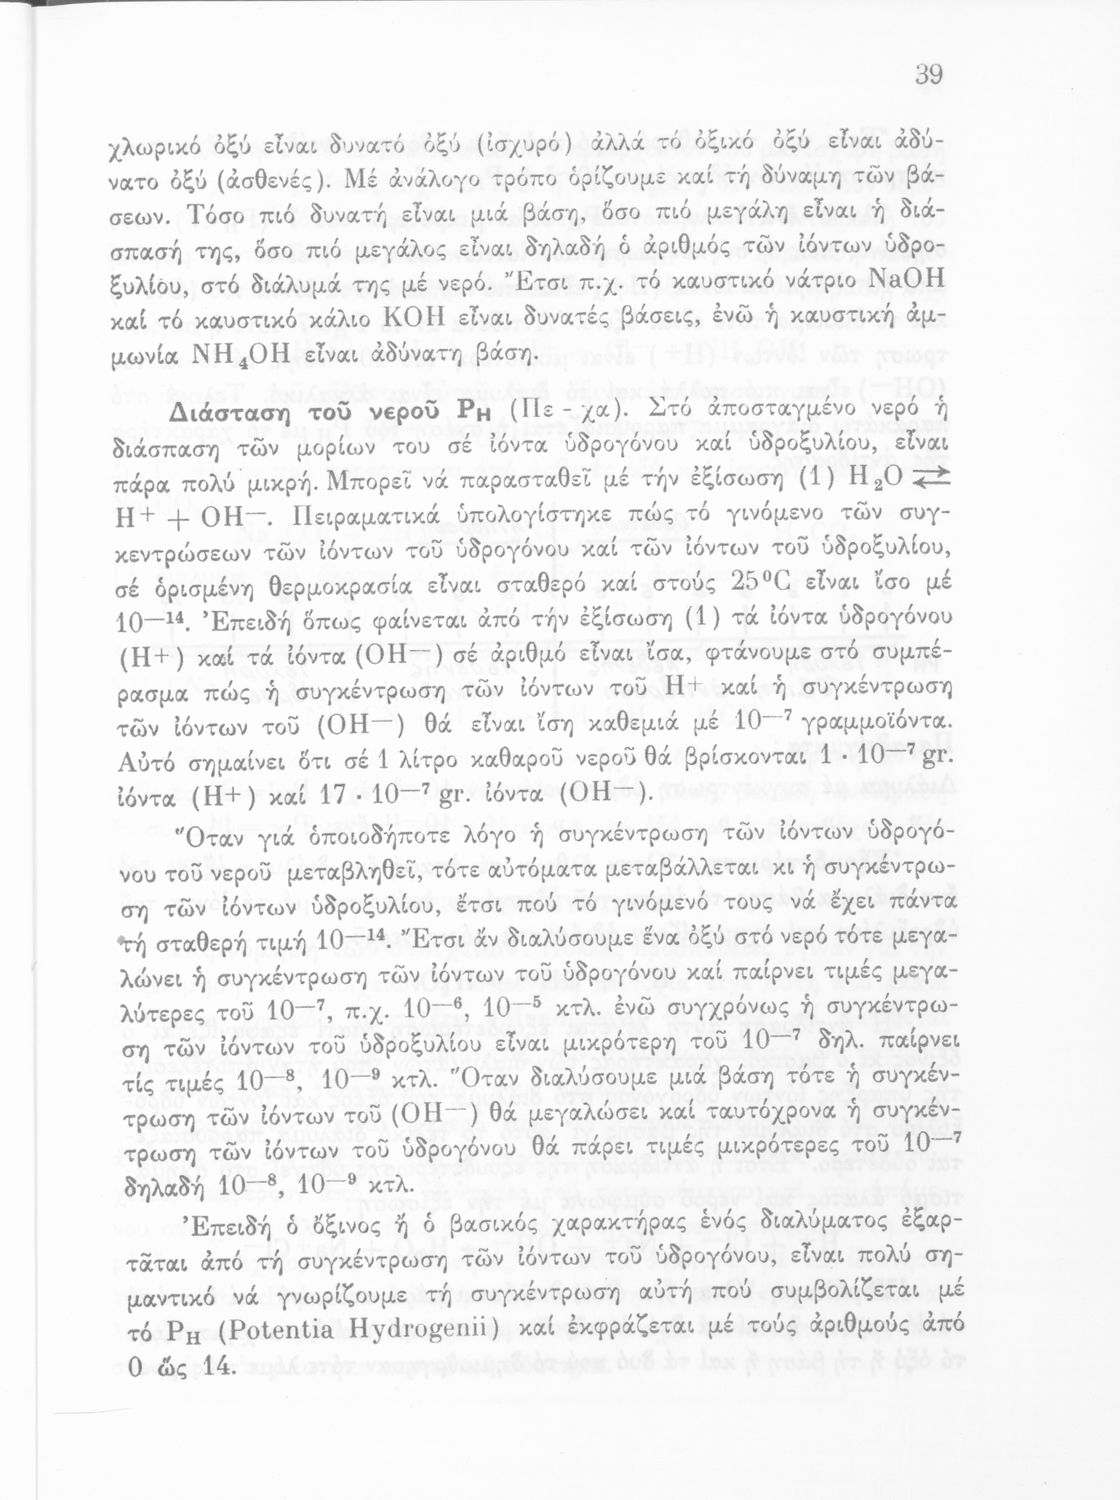 39
χλωρικό ὀξύ εἶναι δυνατό ὀξύ (ἰσχυρό) ἀλλά τό ὀξικό ὀξύ εἶναι ἀδύ-
νατο ὀξύ (ἀσθενές). Μέ ἀνάλογο τρόπο ὁρίζουμε καί τή δύναμη τῶν βά-
σεων. Τόσο πιό δυνατή εἶναι μιά βάση, ὅσο πιό μεγάλη εἶναι ἡ διά-
σπασή της, ὅσο πιό μεγάλος εἶναι δηλαδή ὁ ἀριθμός τῶν ἰόντων ὑδρο-
ξυλίου, στό διάλυμά της μέ νερό. Ἔτσι π.χ. τό καυστικό νάτριο NaOH
καί τό καυστικό κάλιο KOH εἶναι δυνατές βάσεις, ἐνῶ ἡ καυστική ἀμ-
μωνία NH₄OH εἶναι ἀδύνατη βάση.
Διάσταση τοῦ νεροῦ Pн (Πε - χα). Στό ἀποσταγμένο νερό ἡ
διάσπαση τῶν μορίων του σέ ἰόντα ὑδρογόνου καί ὑδροξυλίου, εἶναι
πάρα πολύ μικρή. Μπορεῖ νά παρασταθεῖ μέ τήν ἐξίσωση (1) H₂O ⇄
H⁺ + OH—. Πειραματικά ὑπολογίστηκε πώς τό γινόμενο τῶν συγ-
κεντρώσεων τῶν ἰόντων τοῦ ὑδρογόνου καί τῶν ἰόντων τοῦ ὑδροξυλίου,
σέ ὁρισμένη θερμοκρασία εἶναι σταθερό καί στούς 25⁰C εἶναι ἴσο μέ
10—¹⁴. Ἐπειδή ὅπως φαίνεται ἀπό τήν ἐξίσωση (1) τά ἰόντα ὑδρογόνου
(H+) καί τά ἰόντα (OH—) σέ ἀριθμό εἶναι ἴσα, φτάνουμε στό συμπέ-
ρασμα πώς ἡ συγκέντρωση τῶν ἰόντων τοῦ H+ καί ἡ συγκέντρωση
τῶν ἰόντων τοῦ (OH—) θά εἶναι ἴση καθεμιά μέ 10—⁷ γραμμοϊόντα.
Αὐτό σημαίνει ὅτι σέ 1 λίτρο καθαροῦ νεροῦ θά βρίσκονται 1 · 10—⁷ gr.
ἰόντα (H+) καί 17 · 10—⁷ gr. ἰόντα (OH—).
Ὅταν γιά ὁποιοδήποτε λόγο ἡ συγκέντρωση τῶν ἰόντων ὑδρογό-
νου τοῦ νεροῦ μεταβληθεῖ, τότε αὐτόματα μεταβάλλεται κι ἡ συγκέντρω-
ση τῶν ἰόντων ὑδροξυλίου, ἔτσι πού τό γινόμενό τους νά ἔχει πάντα
τή σταθερή τιμή 10—¹⁴. Ἔτσι ἄν διαλύσουμε ἕνα ὀξύ στό νερό τότε μεγα-
λώνει ἡ συγκέντρωση τῶν ἰόντων τοῦ ὑδρογόνου καί παίρνει τιμές μεγα-
λύτερες τοῦ 10—⁷, π.χ. 10—⁶, 10—⁵ κτλ. ἐνῶ συγχρόνως ἡ συγκέντρω-
ση τῶν ἰόντων τοῦ ὑδροξυλίου εἶναι μικρότερη τοῦ 10—⁷ δηλ. παίρνει
τίς τιμές 10—⁸, 10—⁹ κτλ. Ὅταν διαλύσουμε μιά βάση τότε ἡ συγκέν-
τρωση τῶν ἰόντων τοῦ (OH—) θά μεγαλώσει καί ταυτόχρονα ἡ συγκέν-
τρωση τῶν ἰόντων τοῦ ὑδρογόνου θά πάρει τιμές μικρότερες τοῦ 10—⁷
δηλαδή 10—⁸, 10—⁹ κτλ.
Ἐπειδή ὁ ὄξινος ἤ ὁ βασικός χαρακτήρας ἑνός διαλύματος ἐξαρ-
τᾶται ἀπό τή συγκέντρωση τῶν ἰόντων τοῦ ὑδρογόνου, εἶναι πολύ ση-
μαντικό νά γνωρίζουμε τή συγκέντρωση αὐτή πού συμβολίζεται μέ
τό Pн (Potentia Hydrogenii) καί ἐκφράζεται μέ τούς ἀριθμούς ἀπό
0 ὥς 14.